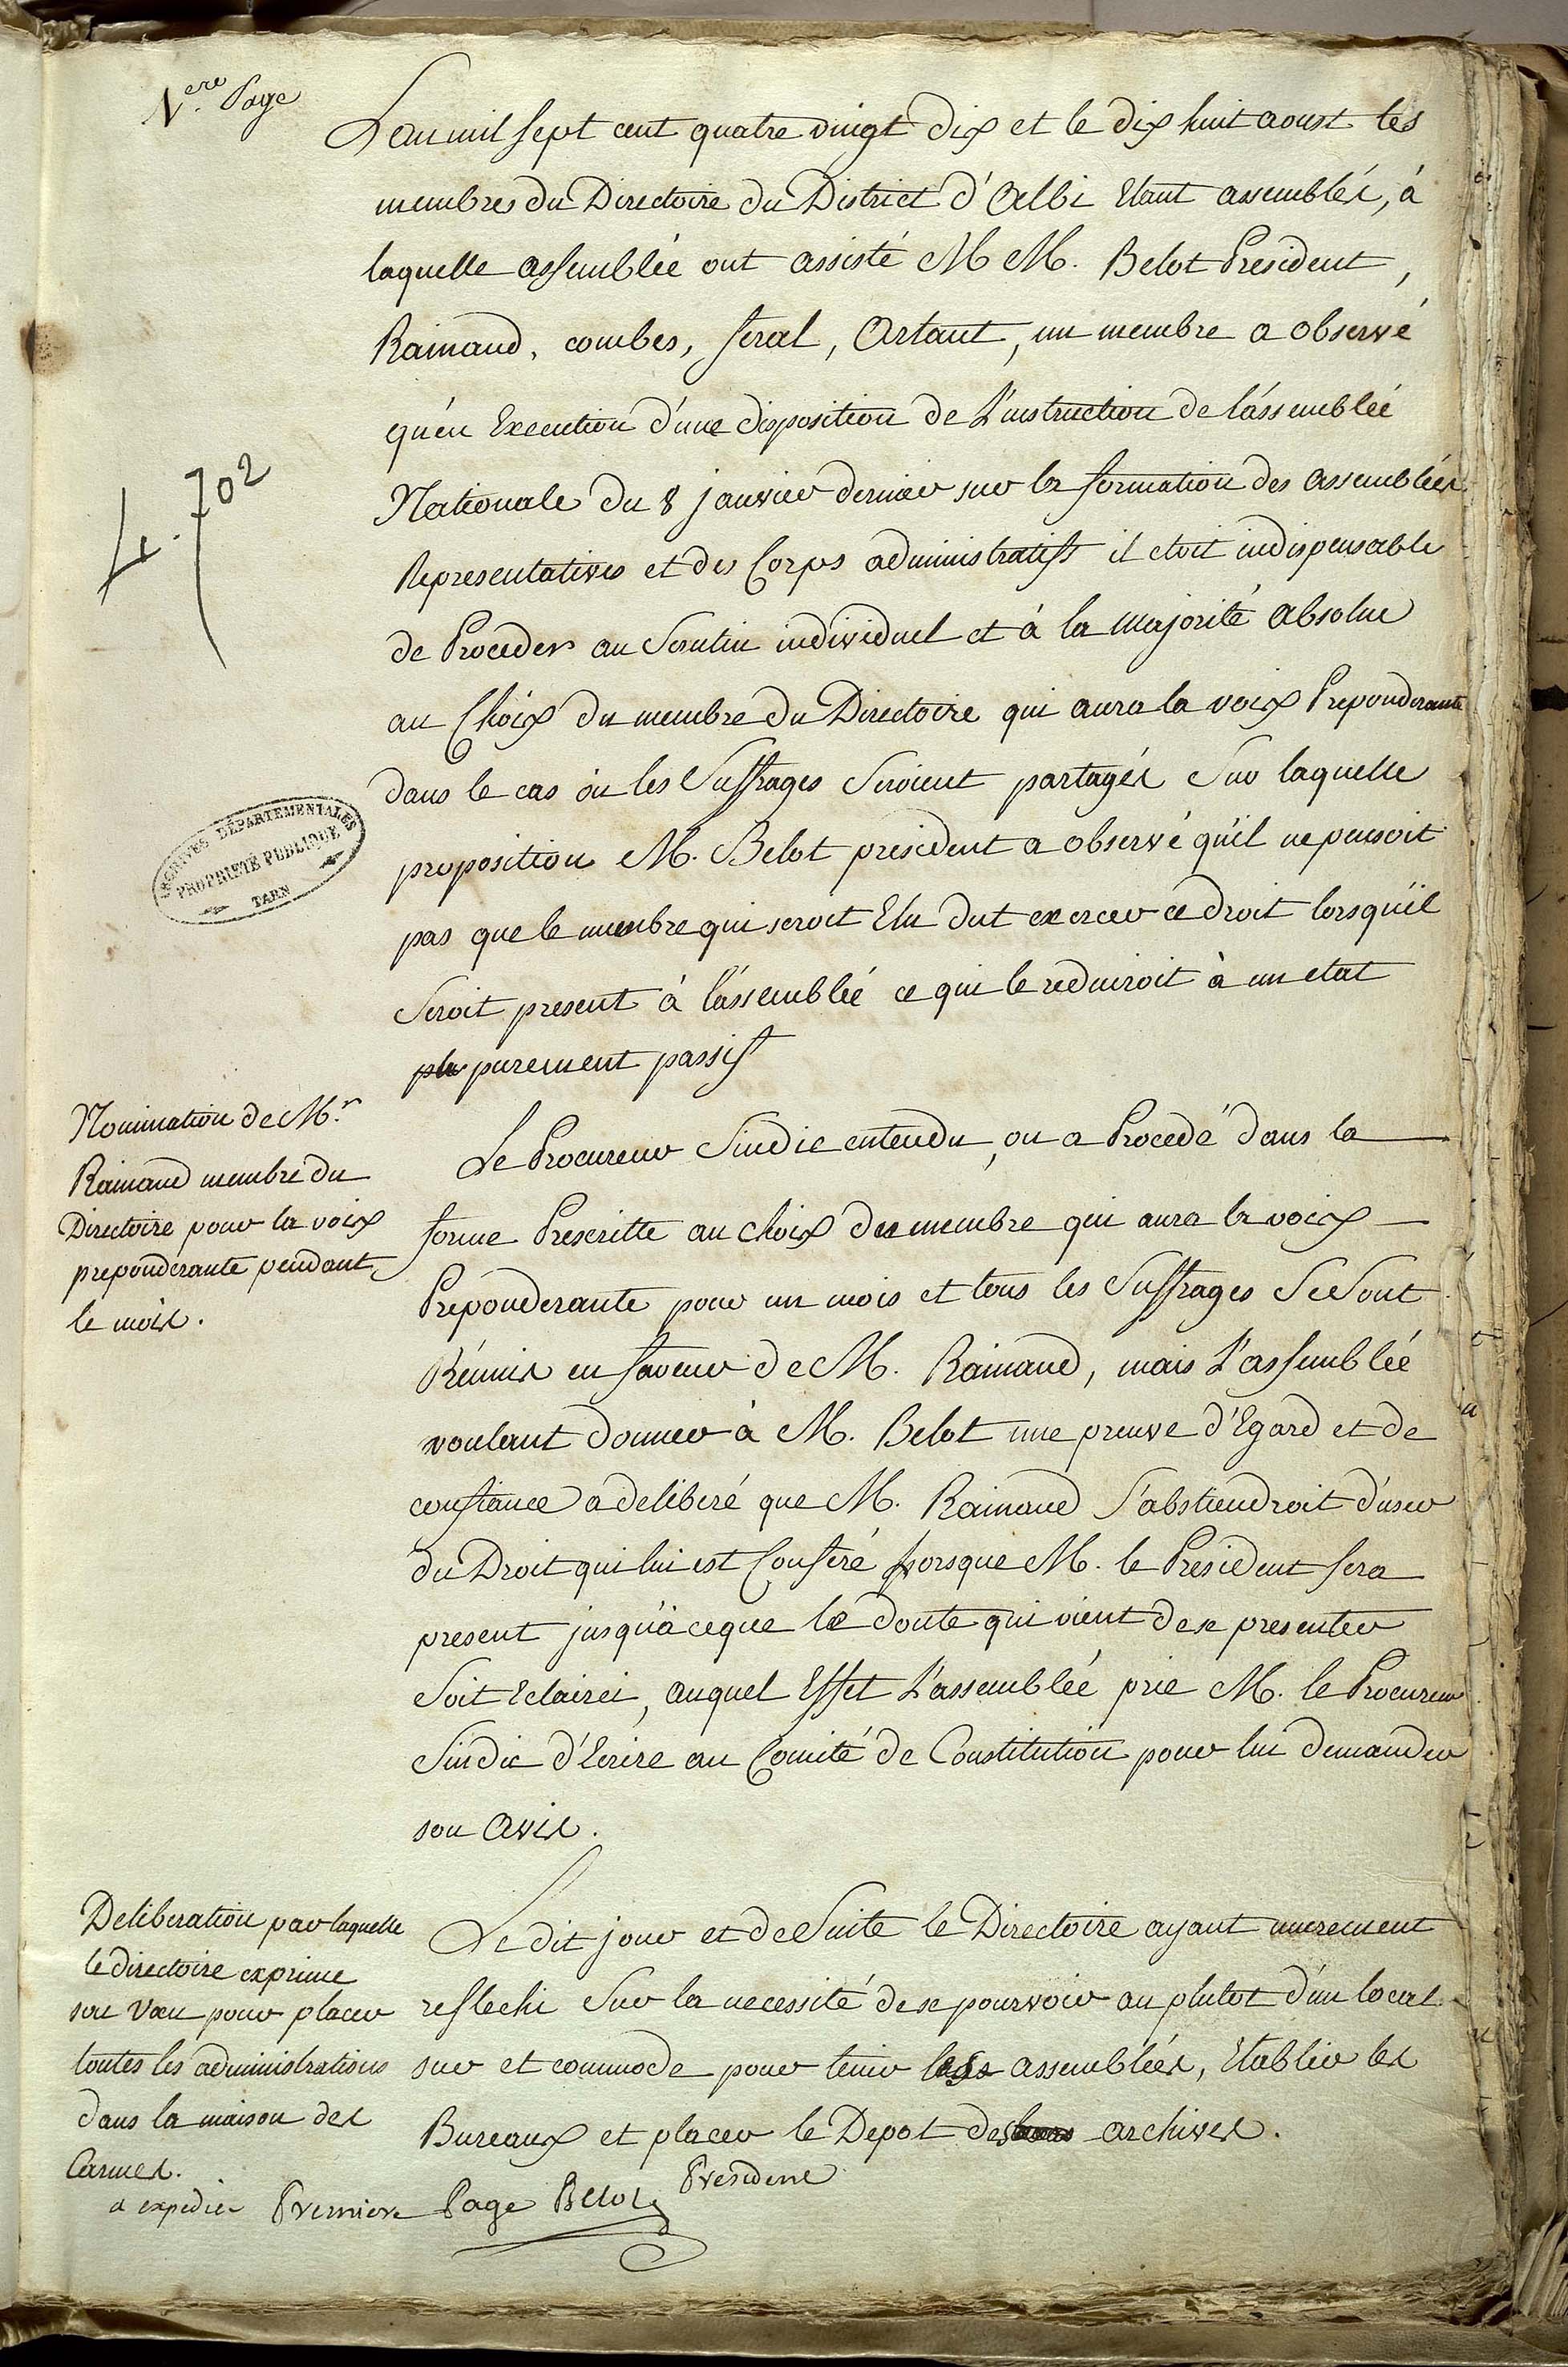 1.ere Page
L'an mil sept cent quatre vingt dix et le dix huit aoust les
membres du Directoire du District d'Albi Etant assemblés, à
laquelle assemblée ont assisté M M. Belot President,
Rainaud, combes, feral, Artaut, un membre a observé
qu'en Execution d'une disposition de L'instruction de l'assemblée
Nationale du 8 janvier dernier sur la formation des assemblées
Representatives et des Corps administratifs il etoit indispensable
de Proceder au Scrutin individuel et à la majorité absolue
au Choix du membre du Directoire qui aura la voix Preponderante
dans le cas où les Suffrages Seroient partagés Sur laquelle
proposition M. Belot president a observé qu'il ne pensoit
pas que le membre qui seroit Elu dut exercer ce droit lorsqu'il
Seroit present à l'assemblée ce qui le reduiroit à un etat
plus purement passif
Le Procureur Sindic entendu, on a Procedé dans la
forme Prescritte au choix du membre qui aura la voix
Préponderante pour un mois et tous les Suffrages Se Sont
Réunis en faveur de M. Rainaud, mais L'assemblée
voulant donner à M. Belot une preuve d'Egard et de
confiance a deliberé que M. Rainaud S'abstiendroit d'user
du Droit qui lui est Conferé lorsque M. le President sera
present jusqu'à ce que le doute qui vient de se presenter
Soit Eclairci, auquel Effet L'assemblée prie M. le Procureur
Sindic d'Ecrire au Comité de Constitution pour lui demander
son avis.
Le dit jour et de Suite le Directoire ayant murement
reflechi Sur la necessité de se pourvoir au plutot d'un local
sur et commode pour tenir les assemblées, Etablir les
Bureaux et placer le Depot des archives.
Premiere Page Belot President
4.702
ARCHIVES DÉPARTEMENTALES
PROPRIÉTÉ PUBLIQUE
TARN
Nomination de M.r
Rainaud membre du
Directoire pour la voix
preponderante pendant
le mois.
Deliberation par laquelle
le directoire exprime
son vœu pour placer
toutes les administrations
dans la maison des
Carmes.
a expedier